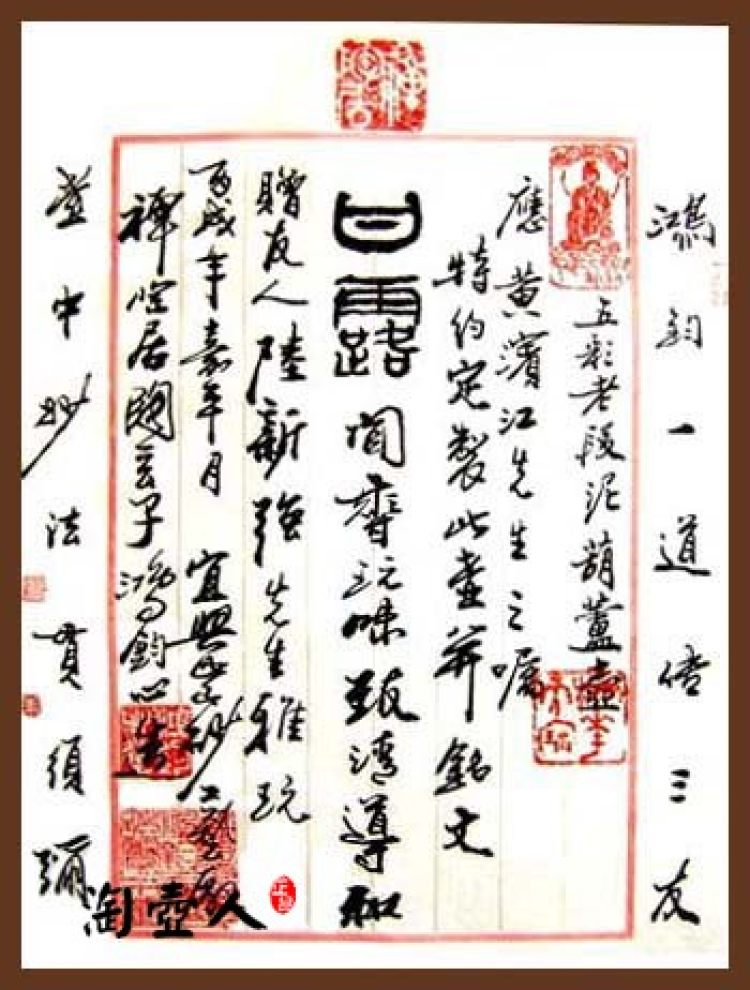 鴻鈞一道傳三友
五彩老段泥葫蘆壺
應黃濱江先生之囑
特約定製此壺并銘文
甘露 聞香玩味甄清導和
贈友人陸新強先生雅玩
丙戌年嘉平月 宜興紫砂工藝廠
禪居陶玄子鴻鈞心
壺中妙法貫須彌
淘壺人